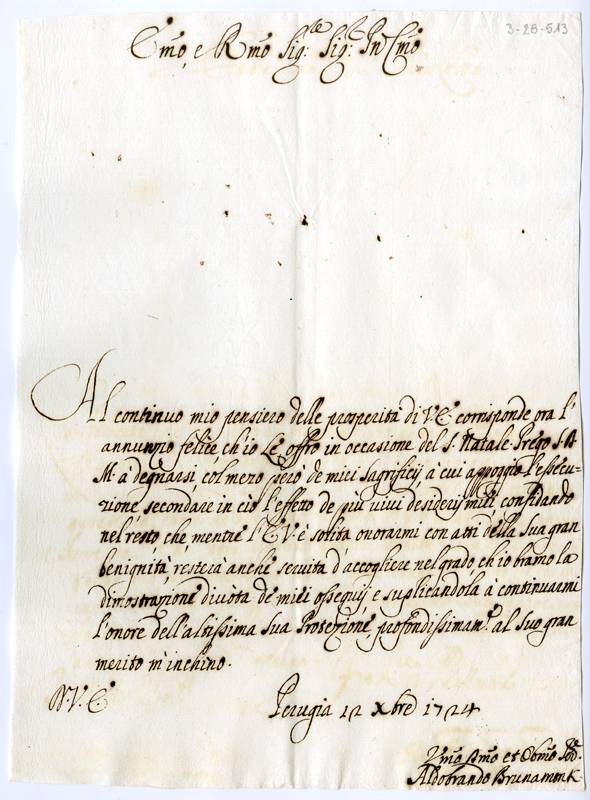 3-28-513
Emo, e Rmo Sig:re Sig:r Pñ Cmo
Al continuo mio pensiero delle prosperità di V.E. corrisponde ora l'
annunzio felice ch'io Le offro in occasione del S. Natale. Prego S.D.
M. a degnarsi col mezo però de miei Sagrificij à cui appoggio l'esecu-
zione secondare in ciò l'effetto de più vivi desiderij miei, confidando
nel resto che, mentre l'E.V. è solita onorarmi con atti della sua gran
benignità, resterà anche servita d'accogliere nel grado, ch'io bramo la
dimostrazione divota de miei ossequij, e suplicandola à continuarmi
l'onore dell'altissima sua Protezione, profondissimamte. al suo gran
merito m'inchino.
D. V. E.
Perugia 12 Xbre 1724
Vmo Dmo et Obmo
Aldobrando Brunamonti